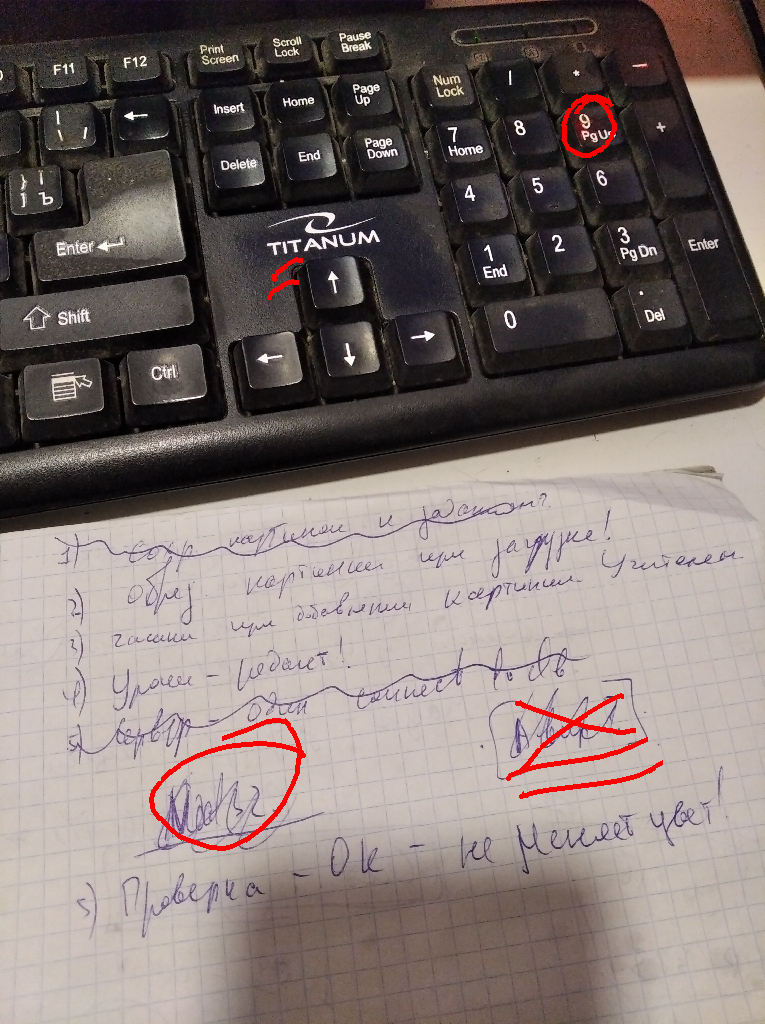 F11 F12 Print Screen Scroll Lock Pause Break
Insert Home Page Up Num Lock / * -
Delete End Page Down 7 Home 8 9 Pg Up +
} ] Ъ
4 5 6
Enter
TITANUM
1 End 2 3 Pg Dn Enter
Shift
0 . Del
Ctrl
1) сохр картинок и
2) Обрез. картинки при загрузке!
3) при добавлении картинки Учителем
4) Уроки - редакт!
5) Сервер - один connect
5) Проверка - Ok - не меняет цвет!